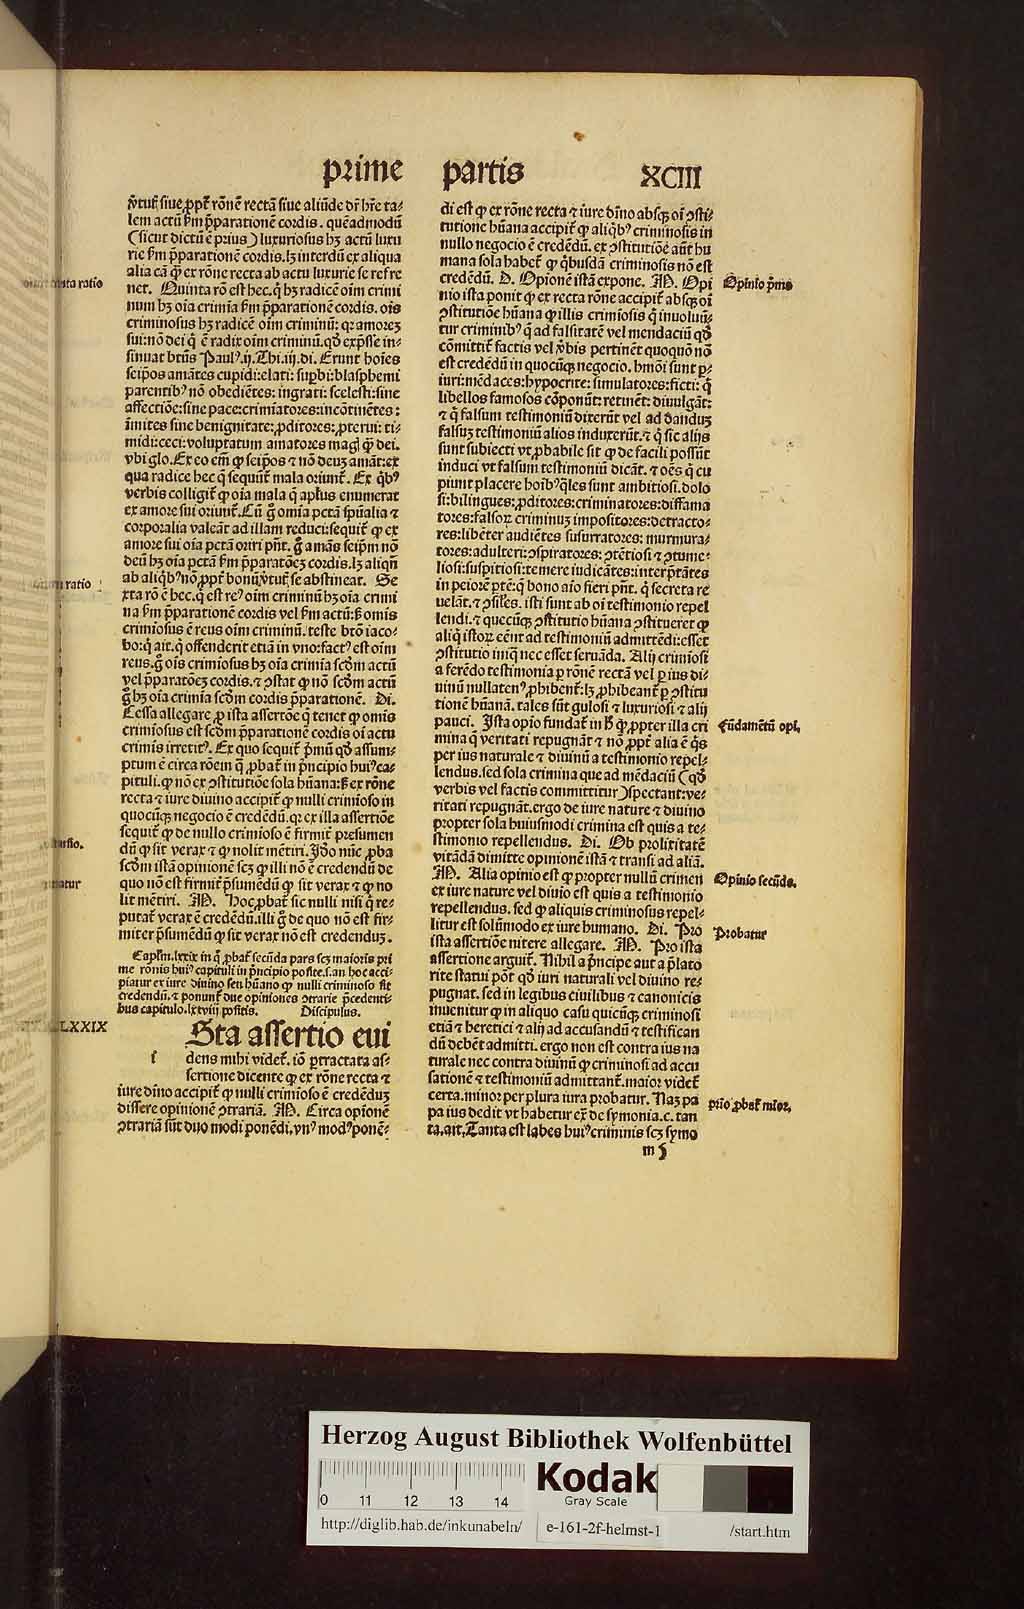 prime partis XCIII
v̄tut̄ siue ꝓpt̄ rōnē rectā siue aliūde dr̄ hr̄e ta-
lem actū ẜm p̄parationē cordis. quēadmodū
(sicut dictū ē prius) luxuriosus hꝫ actū luxu
rie ẜm p̄parationē cordis. lꝫ interdū ex aliqua
alia cā q̄ ex rōne recta ab actu luxurie se refre
net. Quinta rō est hec. q̄ hꝫ radicē oīm crimi
num hꝫ oīa crimīa ẜm p̄parationē cordis. oīs
criminosus hꝫ radicē oīm criminū: qꝛ amoreꝫ
sui: nō dei q̄ ē radix oīm criminū. qd̓ exp̄sse in-
sinuat btūs Paulꝰ.ij.Thi.iij.di. Erunt hoīes
seip̄os amātes cupidi: elati: suꝑbi: blasphemi
parentibꝰ nō obediētes: ingrati: scelesti: sine
affectiōe: sine pace: crimīatores: incōtinētes:
īmites sine benignitate: ꝓditores: ꝓterui: ti-
midi: ceci: voluptatum amatores maḡ qꝫ dei.
vbi glo. Ex eo em̄ ꝙ seip̄os ⁊ nō deuꝫ amāt: ex
qua radice hec q̄ sequūt̄ mala oriunt̄. Ex q̄bꝰ
verbis colligit̄ ꝙ oīa mala q̄ ap̄lus enumerat
ex amore sui oriunt̄. Cū g̊ omīa pctā sp̄ualia ⁊
corporalia valeāt ad illam reduci: sequit̄ ꝙ ex
amore sui oīa pctā oriri pn̄t. g̊ amās seip̄m nō
deū hꝫ oīa pctā ẜm p̄paratōeꝫ cordis. lꝫ aliqn̄
ab aliq̄bꝰ nō ꝓpt̄ bonū v̄tut̄ se abstineat. Se
xta rō ē hec. q̄ est reꝰ oīm criminū hꝫ oīa crimi
na ẜm p̄parationē cordis vel ẜm actū: ẜꝫ omīs
crimiosus ē reus oīm criminū. teste btō iaco-
bo: q̄ ait. q̄ offenderit etiā in vno: factꝰ est oīm
reus. g̊ oīs crimiosus hꝫ oīa crimīa scd̓m actū
vel p̄paratōeꝫ cordis. ⁊ ꝯstat ꝙ nō scd̓m actū
g̊ hꝫ oīa crimīa scd̓m cordis p̄parationē. Di.
Cessa allegare ꝓ ista assertōe q̄ tenet ꝙ omīs
crimiosus est scd̓m p̄parationē cordis oī actu
crimīs irretitꝰ. Ex quo sequit̄ p̄mū qd̓ assum-
ptum ē circa rōem q̄ ꝓbat̄ in p̄ncipio huiꝰ ca-
pituli. ꝙ nō ex ꝯstitutiōe sola hūana: ẜꝫ ex rōne
recta ⁊ iure diuino accipit̄ ꝙ nulli crimioso in
quocūqꝫ negocio ē credēdū. qꝛ ex illa assertiōe
sequit̄ ꝙ de nullo crimioso ē firmit̄ presumen
dū ꝙ sit verax ⁊ ꝙ nolit mētiri. Iō nūc ꝓba
scd̓m istā opinionē scꝫ ꝙ illi nō ē credendū de
quo nō est firmit̄ p̄sumēdū ꝙ sit verax ⁊ ꝙ no
lit mētiri. M. Hoc ꝓbat̄ sic nulli nisi q̄ re-
putat̄ verax ē credēdū. illi g̊ de quo nō est fir-
miter p̄sumēdū ꝙ sit verax nō est credenduꝫ.
Caplm̄.lxxix in q̊ ꝓbat̄ secūda pars scꝫ maioris pri
me rōnis huiꝰ capituli in p̄ncipio posite. s. an hoc acci-
piatur ex iure diuino seu hūano ꝙ nulli crimīnoso sit
credendū. ⁊ ponunt̄ due opiniones ꝯtrarie p̄cedenti-
bus capitulo.lxxviij positis. Discipulus.
LXXIX
i
Sta assertio eui
dens mihi videt̄. iō ꝑtractata as-
sertione dicente ꝙ ex rōne recta ⁊
iure diuīno accipit̄ ꝙ nulli crimioso ē credēduꝫ
dissere opinionē ꝯtrariā. M. Circa opionē
ꝯtrariā sūt duo modi ponēdi. vnꝰ modꝰ ponē-
di est ꝙ ex rōne recta ⁊ iure dīno absqꝫ oī ꝯsti-
tutione hūana accipit̄ ꝙ aliq̄bꝰ criminosis in
nullo negocio ē credēdū. ex ꝯstitutiōe aūt hu
mana sola habet̄ ꝙ q̄busdā criminosis nō est
credēdū. D. Opionē istā expone. M. Opi
nio ista ponit ꝙ ex recta rōne accipit̄ absqꝫ oī
ꝯstitutiōe hūana ꝙ illis crimiosis q̄ inuoluū-
tur criminibꝰ q̄ ad falsitatē vel mendaciū qd̓
cōmittit̄ factis vel v̄bis pertinēt quoquō nō
est credēdū in quocūqꝫ negocio. hmōi sunt ꝑ-
iuri: mēdaces: hypocrite: simulatores: ficti: q̄
libellos famosos cōponūt: retinēt: diuulgāt:
⁊ q̄ falsum testimoniū dixerūt vel ad dandum
falsuꝫ testimoniū alios induxerūt. ⁊ q̄ sic alijs
sunt subiecti vt ꝓbabile sit ꝙ de facili possūt
induci vt falsum testimoniū dicāt. ⁊ oēs q̄ cu
piunt placere hoībꝰ q̄les sunt ambitiosi. dolo
si: bilingues: ꝓditores: criminatores: diffama
tores: falsoꝝ criminuꝫ impositores: detracto-
res: libēter audiētes susurratores: murmura-
tores: adulteri: ꝯspiratores: ꝯtētiosi ⁊ ꝯtume-
liosi: suspitiosi: temere iudicātes: interp̄tātes
in peiorē ꝑtē: q̄ bono aīo fieri pn̄t. q̄ secreta re
uelāt. ⁊ ꝯsiles. isti sunt ab oī testimonio repel
lendi. ⁊ quecūqꝫ ꝯstitutio hūana ꝯstitueret ꝙ
aliq̄ istoꝝ eēnt ad testimoniū admittēdi: esset
ꝯstitutio iniq̄ nec esset seruāda. Alij crimiosi
a ferēdo testimonia ꝑ rōnē rectā vel ꝑ ius di-
uinū nullatenꝰ ꝓhibent̄: lꝫ ꝓhibeant̄ ꝑ ꝯstitu
tionē hūanā. tales sūt gulosi ⁊ luxuriosi ⁊ alij
pauci. Ista opio fundat̄ in hͦ ꝙ ꝓpter illa cri
mina q̄ veritati repugnāt ⁊ nō ꝓpt̄ alia ē q̄s
per ius naturale ⁊ diuinū a testimonio repel-
lendus. sed sola crimina que ad mēdaciū (qd̓
verbis vel factis committitur) spectant: ve-
ritati repugnāt. ergo de iure nature ⁊ diuino
propter sola huiusmodi crimina est quis a te-
stimonio repellendus. Di. Ob prolixitatē
vitādā dimitte opinionē istā ⁊ transi ad aliā.
M. Alia opinio est ꝙ propter nullū crimen
ex iure nature vel diuīo est quis a testimonio
repellendus. sed ꝙ aliquis criminosus repel-
litur est solūmodo ex iure humano. Di. Pro
ista assertiōe nitere allegare. M. Pro ista
assertione arguit̄. Nihil a p̄ncipe aut a p̄lato
rite statui pōt qd̓ iuri naturali vel diuino re-
pugnat. sed in legibus ciuilibus ⁊ canonicis
inuenitur ꝙ in aliquo casu quicūqꝫ criminosi
etiā ⁊ heretici ⁊ alij ad accusandū ⁊ testifican
dū debēt admitti. ergo non est contra ius na
turale nec contra diuinū ꝙ criminosi ad accu
sationē ⁊ testimoniū admittant̄. maior videt̄
certa. minor per plura iura probatur. Naꝫ pa
pa ius dedit vt habetur ex̄ de symonia. c. tan
ta. ait. Tanta est labes huiꝰ criminis scꝫ symo
m
ratio
ratio
Opinio p̄ma
Fūdamētū opi.
Opinio secūda.
Probatur
prīo ꝓbat̄ mīor.
Herzog August Bibliothek Wolfenbüttel
0 11 12 13 14
Kodak
Gray Scale
http://diglib.hab.de/inkunabeln/ e-161-2f-helmst-1 /start.htm